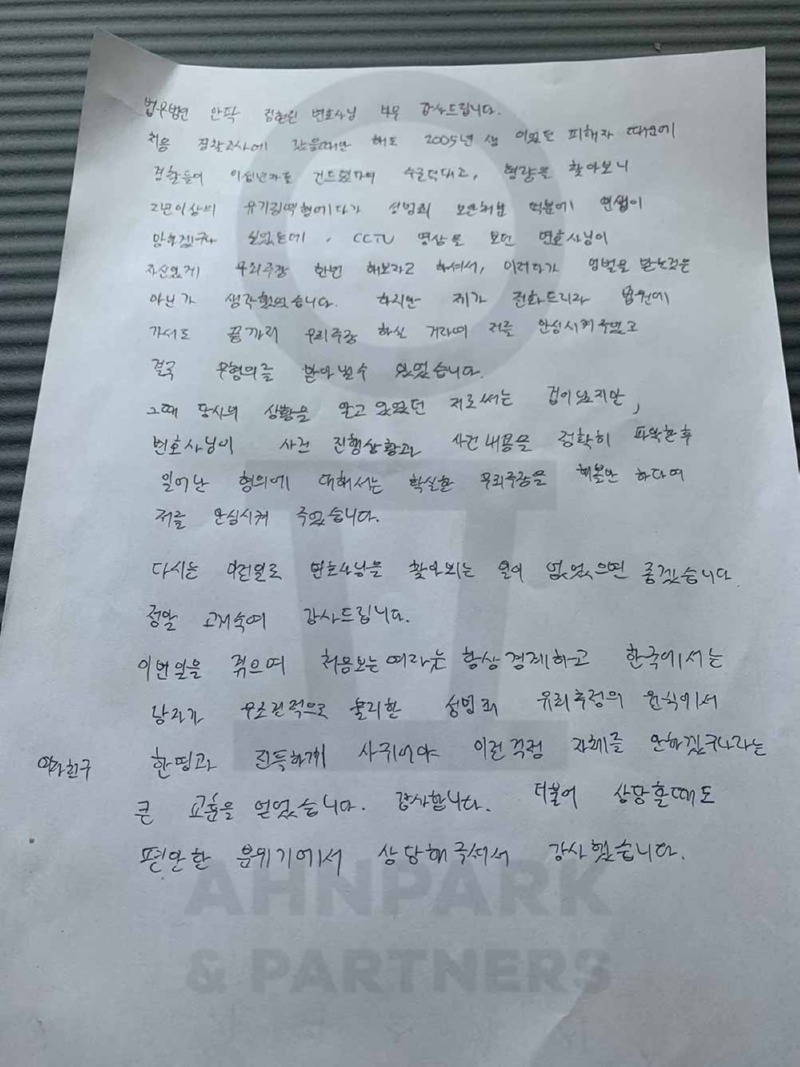 법무법인 안팍 김한린 변호사님 너무 감사드립니다.
처음 경찰조사에 갔을때만 해도 2005년 생 이었던 피해자 때문에
경찰들이 미성년자를 건드렸다며 수군덕대고, 형량을 찾아보니
2년이상의 유기징역형에다가 성범죄 보안처분 덕분에 인생이
망하겠구나 싶었는데, CCTV 영상을 보던 변호사님이
자신있게 무죄주장 한번 해보라고 하셔서, 이러다가 엄벌을 받는것은
아닌가 생각했었습니다. 하지만 제가 전화드리자 법원에
가서도 끝까지 무죄주장 하신 거라며 저를 안심시켜주었고
결국 무혐의를 받아낼수 있었습니다.
그때 당시의 상황을 알고있었던 저로써는 겁이났지만,
변호사님이 사건 진행상황과 사건내용을 정확히 파악한후
일어난 혐의에 대해서는 확실한 무죄주장을 해볼만 하다며
저를 안심시켜 주었습니다.
다시는 이런일로 변호사님을 찾아뵈는 일이 없었으면 좋겠습니다.
정말 고개숙여 감사드립니다.
이번일을 겪으며 처음보는 여라는 항상경계하고 한국에서는
남자가 무조건적으로 불리한 성범죄 유죄추정의 원칙에서
여자친구 한명과 진득하게 사귀어야 이런걱정 자체를 안하겠구나라는
큰 교훈을 얻었습니다. 감사합니다. 더불어 상담할때도
편안한 분위기에서 상담해주셔서 감사했습니다.
AHNPARK
& PARTNERS